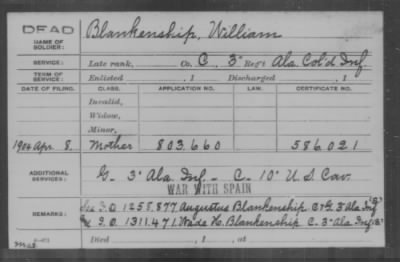 DEAD
NAME OF SOLDIER: Blankenship, William
SERVICE: Late rank, Co. C, 3" Reg't Ala. Col'd Inf.
TERM OF SERVICE: Enlisted , 1 Discharged , 1
DATE OF FILING. CLASS. APPLICATION NO. LAW. CERTIFICATE NO.
Invalid,
Widow,
Minor,
1904 Apr. 8. Mother 803.660 586.021
ADDITIONAL SERVICES: G. 3" Ala. Inf. - C. 10" U.S. Cav.
WAR WITH SPAIN
REMARKS: S.O. 1258.877 Augustus Blankenship C & G 3" Ala Inf
S.O. 1311.471. Wade H. Blankenship C. 3" Ala. Inf
Died , 1 , at